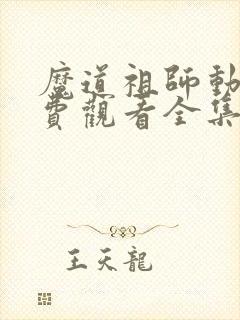 魔道祖師動
費觀看全集
王天龍